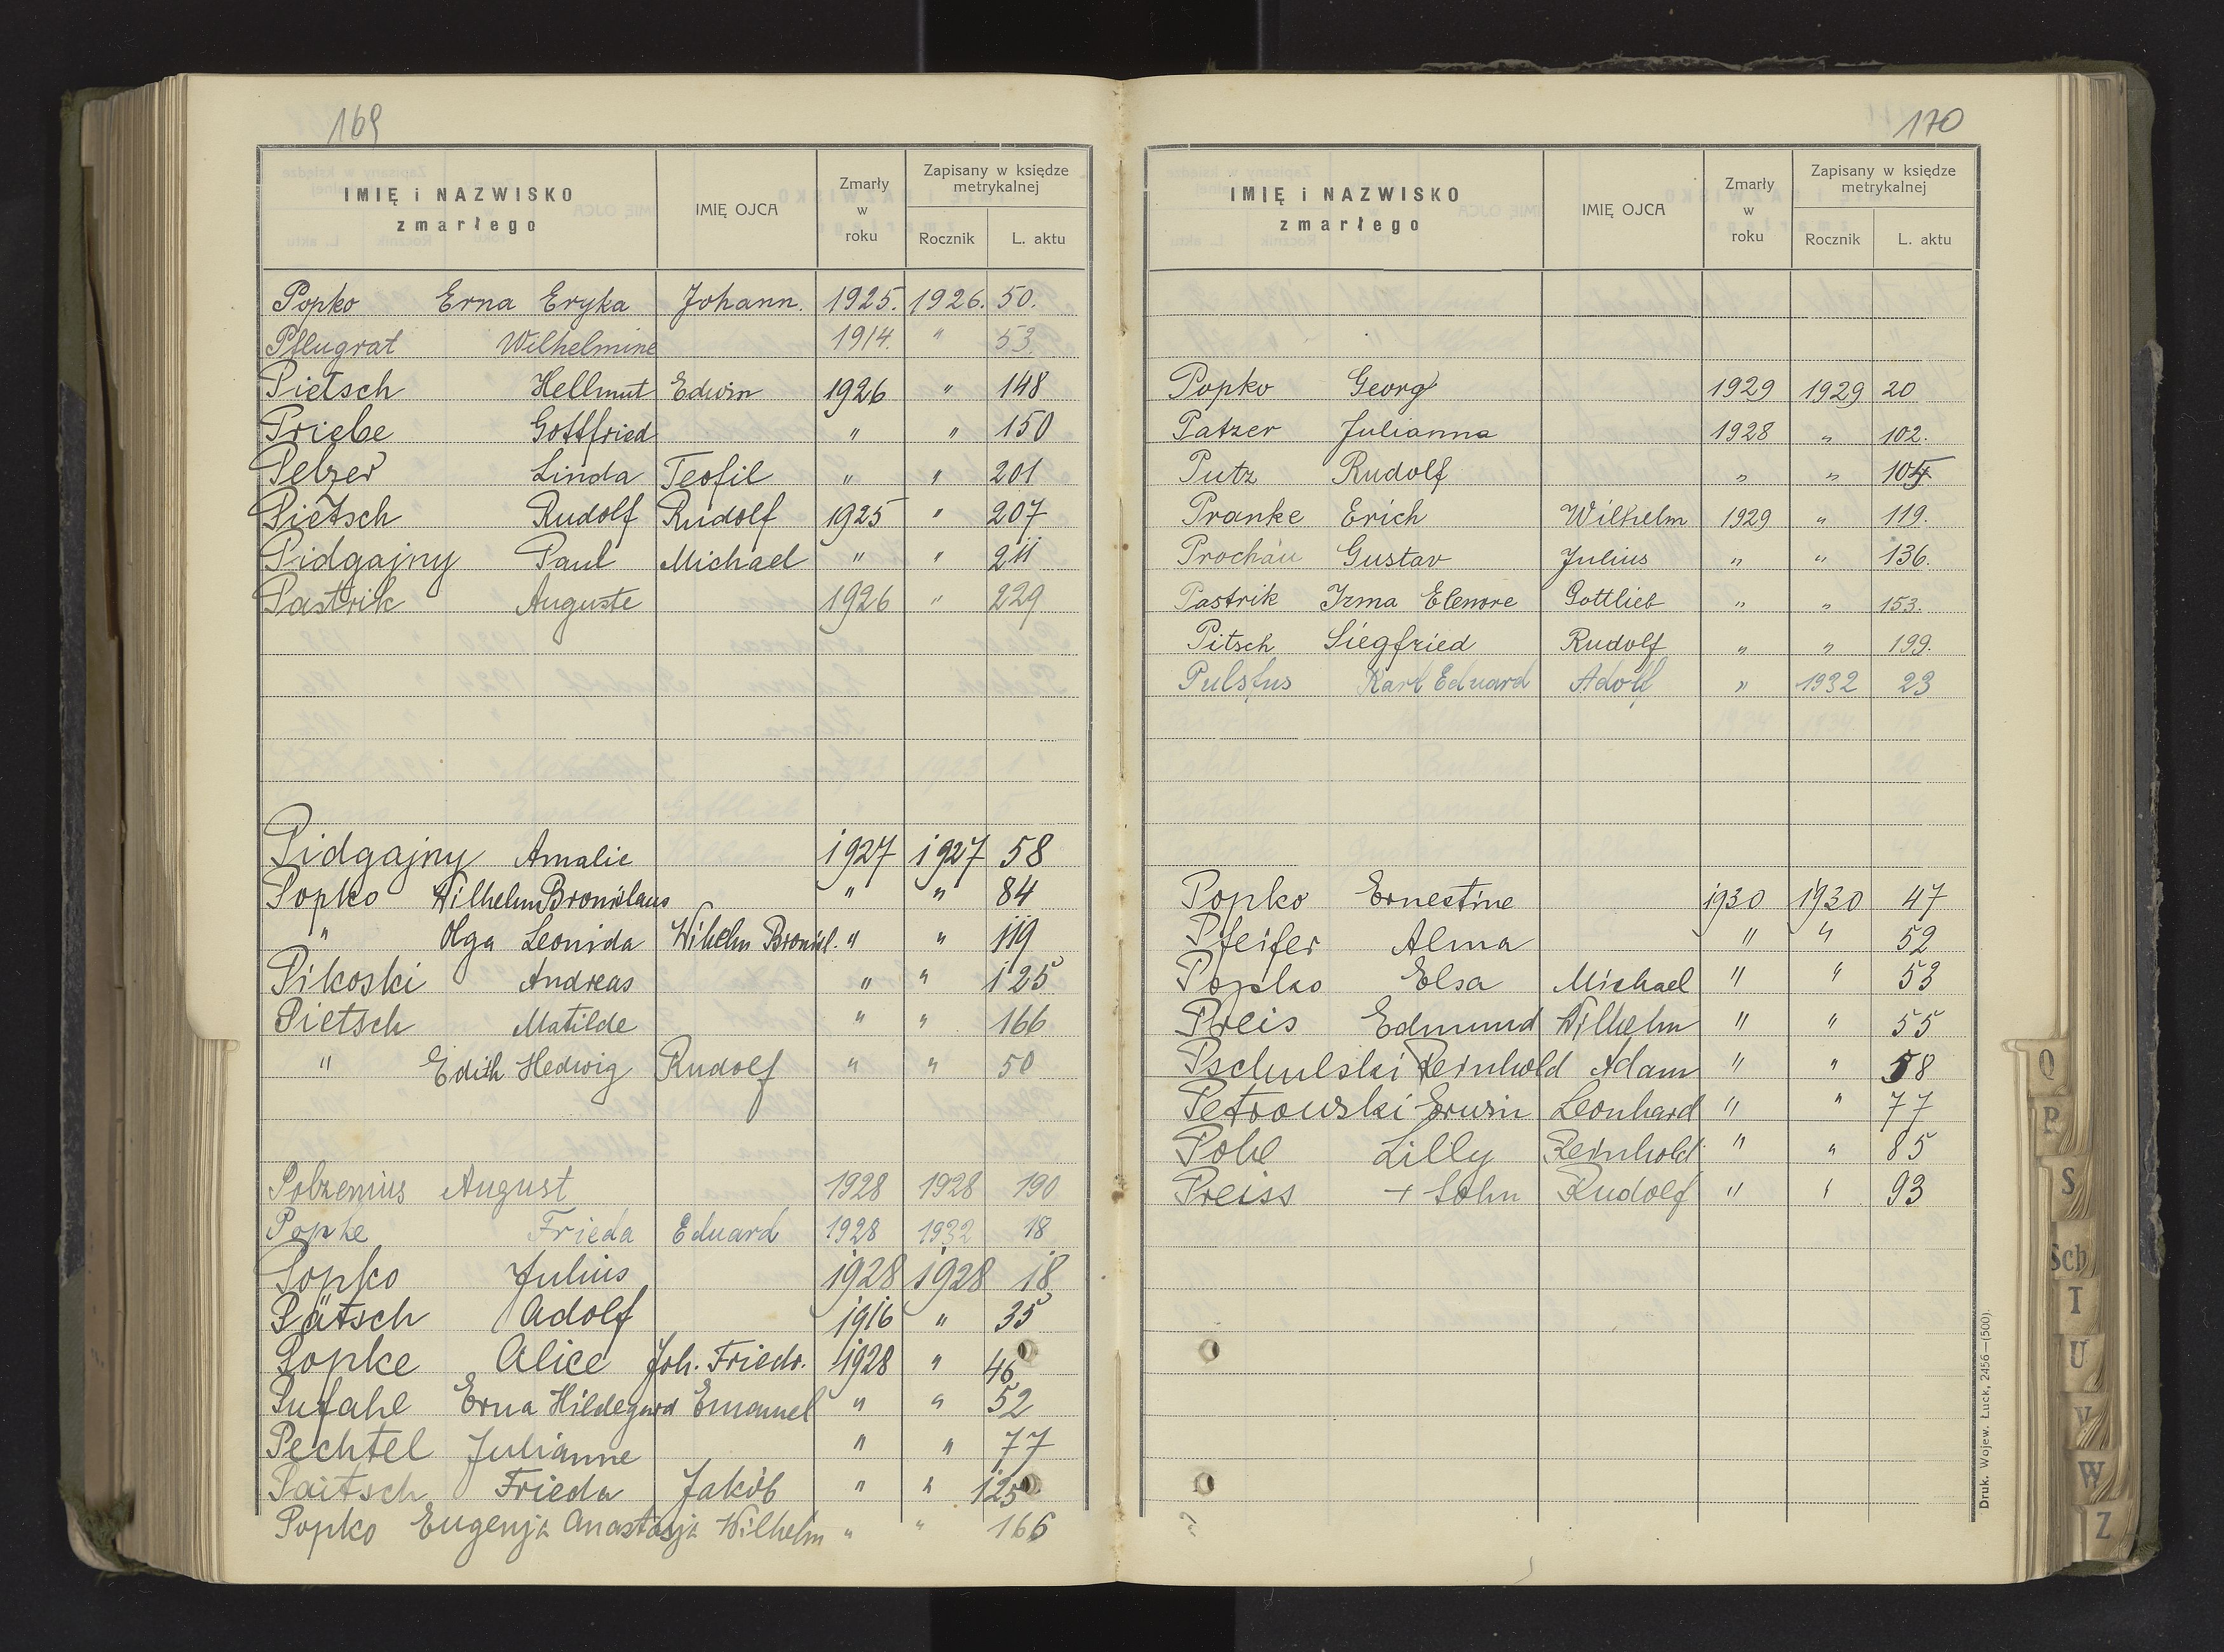 169
IMIĘ i NAZWISKO zmarłego IMIĘ OJCA Zmarły w roku Zapisany w księdze metrykalnej Rocznik L. aktu
Popko Erna Eryka Johann. 1925. 1926. 50.
Pflugrat Wilhelmine 1914. " 53.
Pietsch Hellmut Edwin 1926 " 148
Priebe Gottfried " " 150
Pelzer Linda Teofil " " 201
Pietsch Rudolf Rudolf 1925 " 207
Pidgajny Paul Michael " " 211
Pastrik Auguste 1926 " 229
Pidgajny Amalie 1927 1927 58
Popko Wilhelm Bronislaus " " 84
" Olga Leonida Wilhelm Bronisl. " " 119
Pikoski Andreas " " 125
Pietsch Matilde " " 166
" Edith Hedwig Rudolf " " 50
Polzenius August 1928 1928 190
Popke Frieda Eduard 1928 1932 18
Popko Julius 1928 1928 18
Pätsch Adolf 1916 " 35
Popke Alice Joh. Friedr. 1928 " 46
Pufahl Erna Hildegard Emanuel " " 52
Pechtel Julianne " " 77
Paitsch Frieda Jakób " " 125
Popko Eugenja Anastasja Wilhelm " " 166
170
IMIĘ i NAZWISKO zmarłego IMIĘ OJCA Zmarły w roku Zapisany w księdze metrykalnej Rocznik L. aktu
Popko Georg 1929 1929 20
Patzer Julianna 1928 " 102.
Putz Rudolf " "
Pranke Erich Wilhelm 1929 " 119.
Prochau Gustav Julius " " 136.
Pastrik Irma Elenore Gottlieb " " 153.
Pitsch Siegfried Rudolf " " 199.
Pulsfus Karl Eduard Adolf " 1932 23
Popko Ernestine 1930 1930 47
Pfeifer Alma " " 52
Popko Elsa Michael " " 53
Preis Edmund Wilhelm " " 55
Pschulski Reinhold Adam " " 58
Petrowski Erwin Leonhard " " 77
Pohl Lilly Reinhold " " 85
Preiss + Sohn Rudolf " " 93
Druk. Wojew. Łuck, 2456—(500).
Q
R
S
Sch
T
U
V
W
Z